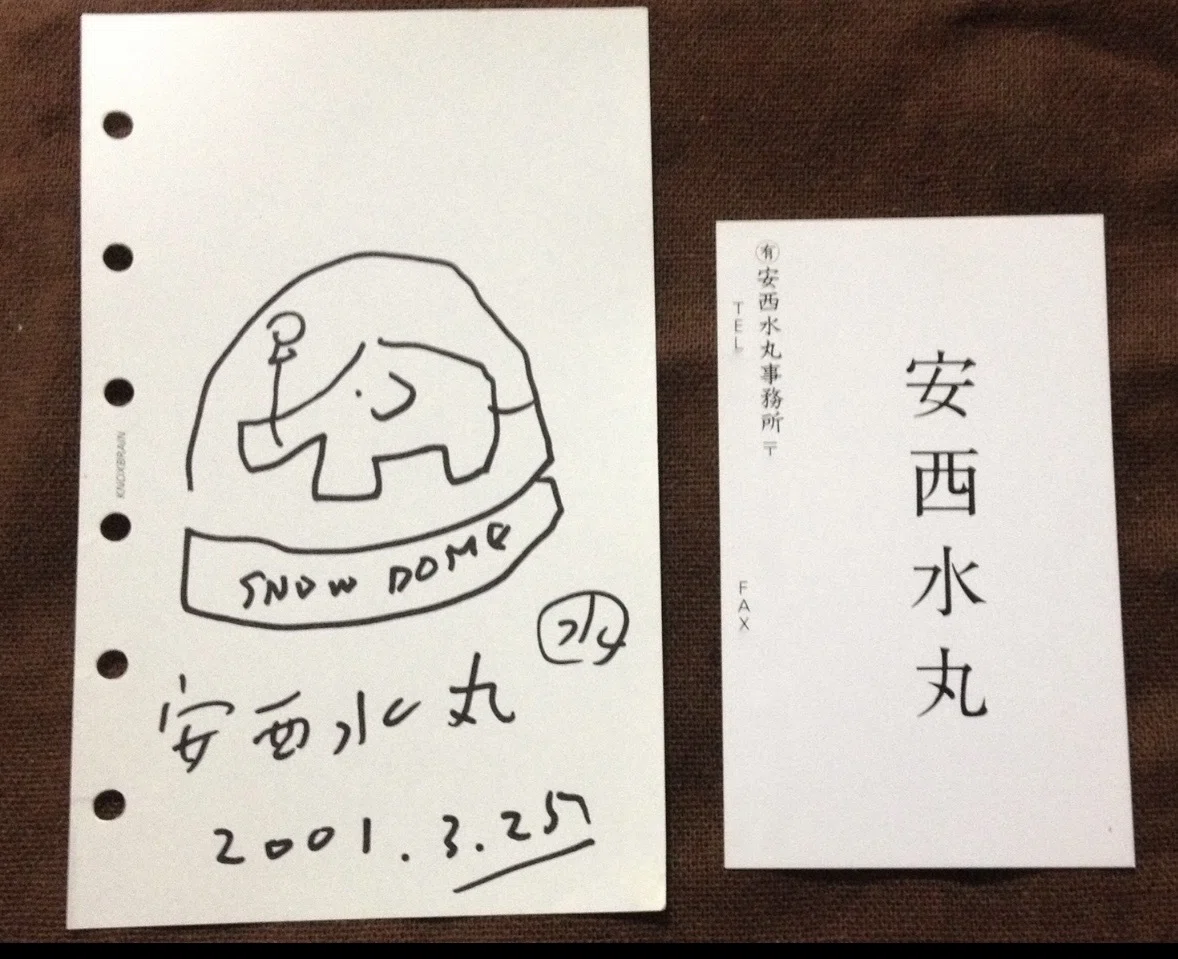 KNOXBRAIN
SNOW DOME
水
安西水丸
2001.3.25
安西水丸
㈲安西水丸事務所 〒
TEL
FAX